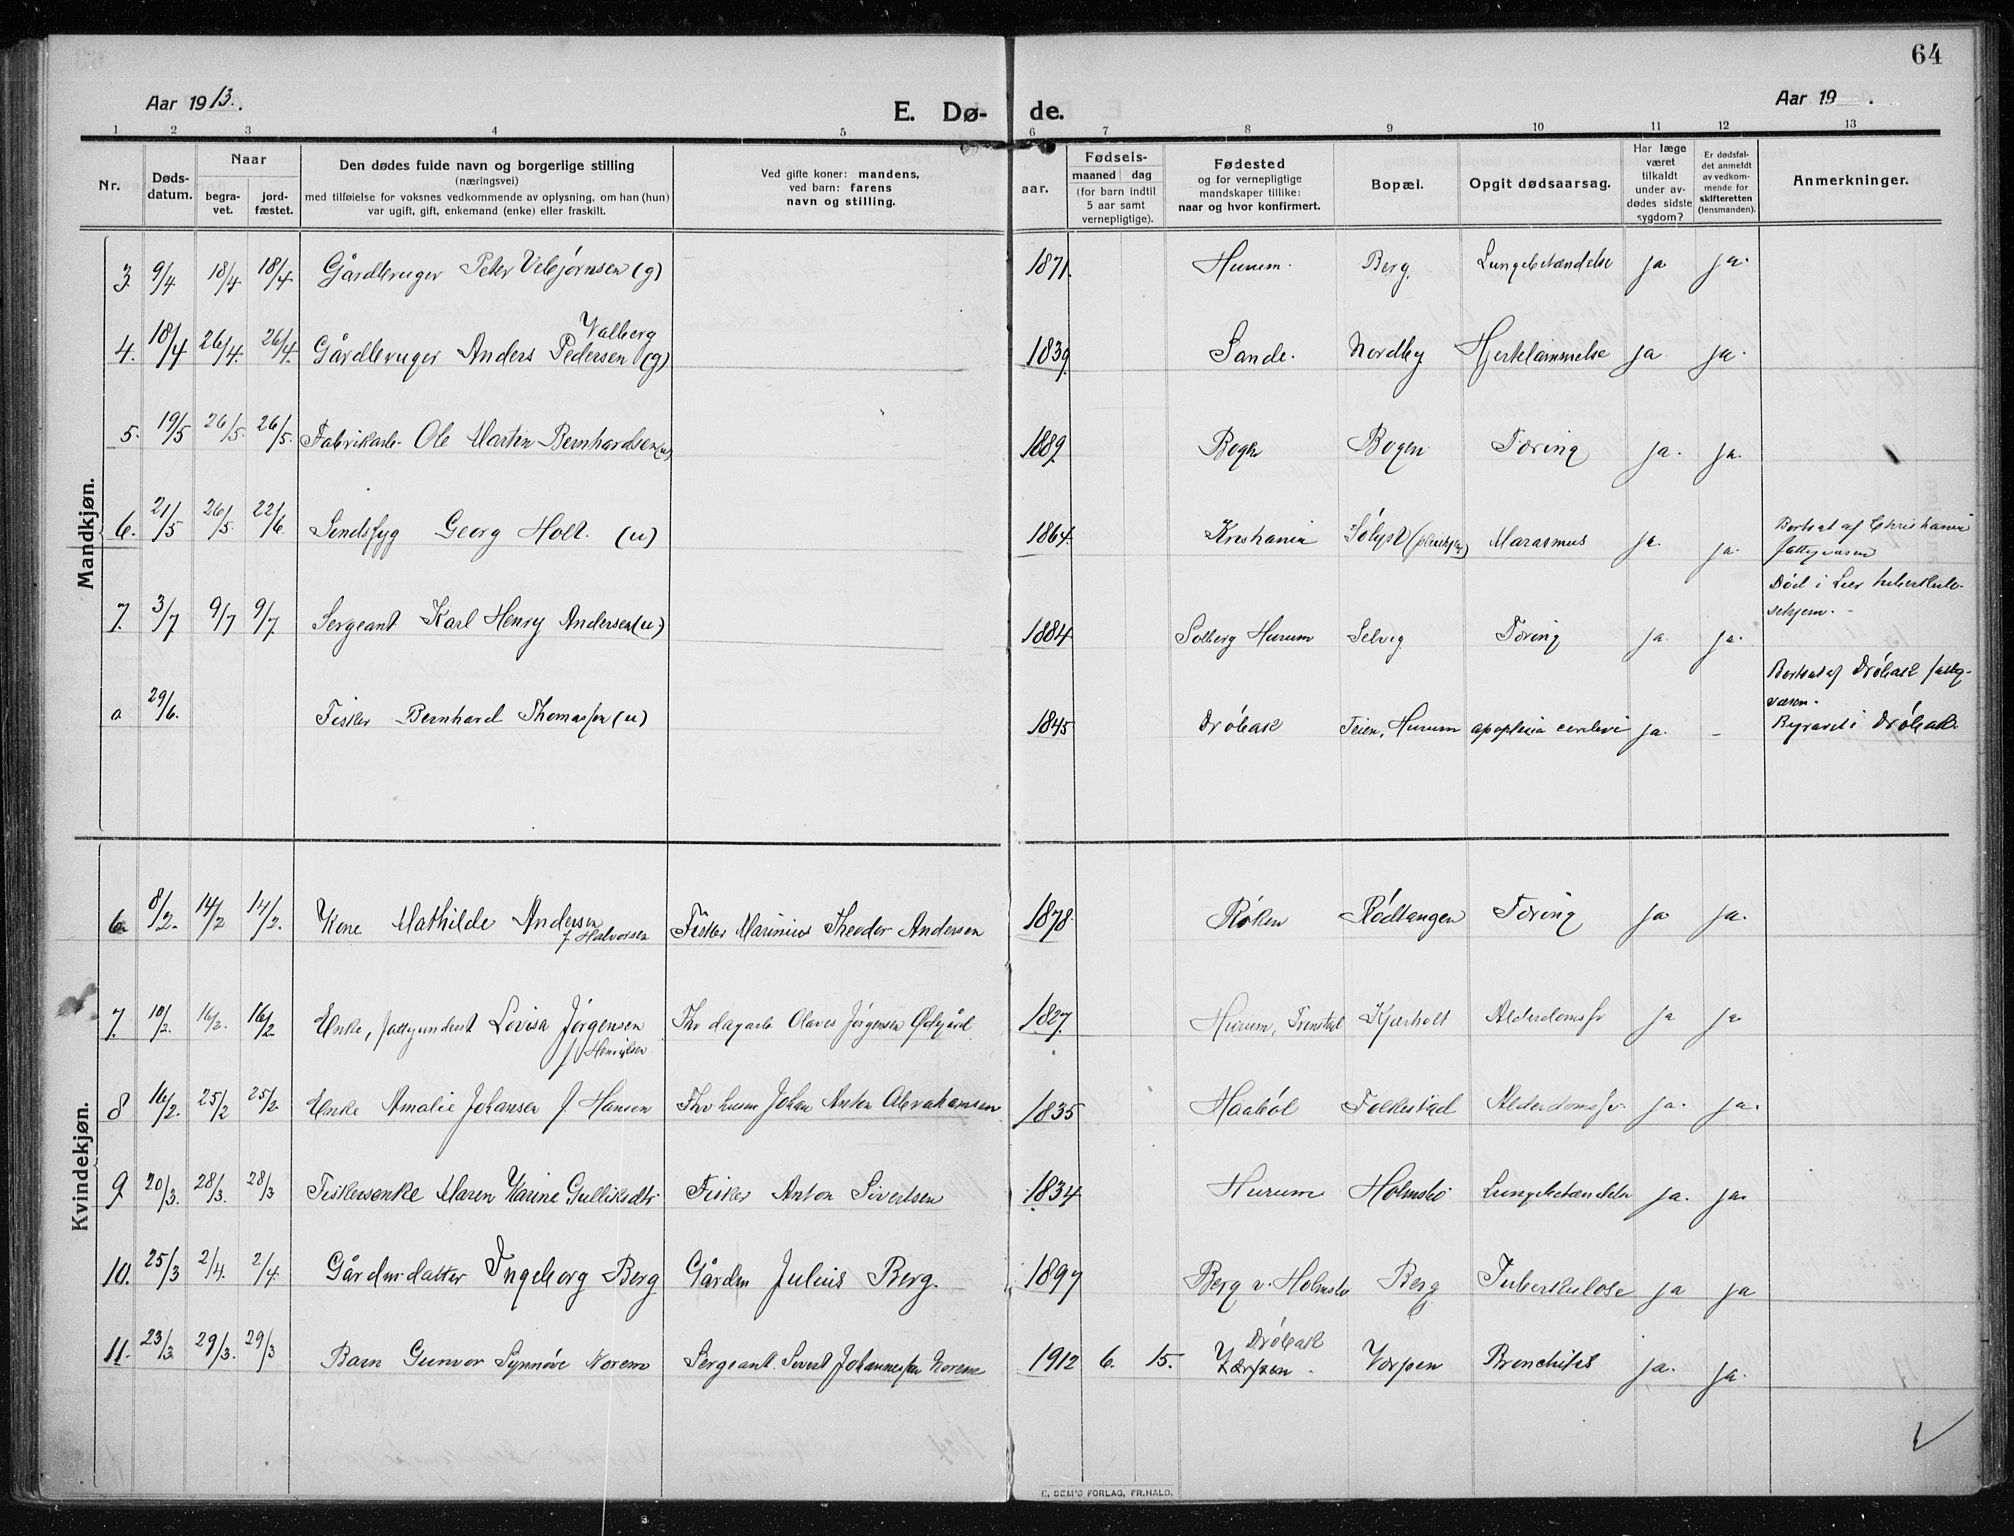 64
Aar 1913.
E. Dø-
de.
Aar 19 .
1 2 3 4 5 6 7 8 9 10 11 12 13
Nr.
Døds-
datum.
Naar
begra-
vet.
jord-
fæstet.
Den dødes fulde navn og borgerlige stilling
(næringsvei)
med tilføielse for voksnes vedkommende av oplysning, om han (hun)
var ugift, gift, enkemand (enke) eller fraskilt.
Ved gifte koner: mandens,
ved barn: farens
navn og stilling.
aar.
Fødsels-
maaned dag
(for barn indtil
5 aar samt
vernepligtige).
Fødested
og for vernepligtige
mandskaper tillike:
naar og hvor konfirmert.
Bopæl.
Opgit dødsaarsag.
Har læge
været
tilkaldt
under av-
dødes sidste
sygdom?
Er dødsfal-
det anmeldt
av vedkom-
mende for
skifteretten
(lensmanden).
Anmerkninger.
Mandkjøn.
3 9/4 18/4 18/4 Gårdbruger Peter Vebjørnsen (g) 1871. Hurum. Berg Lungebetændelse ja ja.
Valberg
4. 18/4 26/4. 26/4. Gårdbruger Anders Pedersen (g) 1839 Sande. Nordby Hjertelammelse ja ja.
5. 19/5 26/5. 26/5. Fabrikarb. Ole Martin Bernhardsen (u) 1889 Bogen Tæring ja. ja.
6. 21/5 26/5. 22/6. Sindssyg Georg Holt. (u) 1864 Kristiania Sólyst Marasmus ja. ja. Bortsat af Christiania
fattigvæsen
7. 3/7 9/7 9/7 Sergeant Karl Henry Andersen (u.) 1884 Solberg Hurum Selvig Tæring ja. ja. Død i Lier tuberkulo-
sehjem.
0 29/6. Fisker Bernhard Thomassen (u) 1845 Drøbak Teien, Hurum apoplexia cerebri ja. - Bortsat af Drøbak fattig-
væsen.
Begravet i Drøbak.
Kvindekjøn.
6. 8/2. 14/2 14/2. Kone Mathilde Andersen Fisker Marinius Theodor Andersen 1878. Røken Rødtangen Tæring ja ja.
f. Halvorsen
7. 10/2. 16/2. 16/2 Enke, fattigunderst Lovisa Jørgensen Fhv dagarb Olaves Jørgensen Ødegård 1827 Hurum, Kjærholt Alderdomssv ja ja
f. Henriksen
8 16/2. 25/2 25/2. Enke Amalie Johansen f Hansen Fhv husm Johan Anton Abrahamsen 1835 Haabøl Folkestad Alderdomssv. ja. ja.
9. 20/3. 28/3. 28/3 Fiskersenke Maren Karine Gulliksdtr Fisker Anton Sivertsen 1834 Hurum Holmsbo Lungebetændelse ja. ja.
10. 25/3 2/4. 2/4 Gårdm.datter Ingeborg Berg Gårdm Julius Berg. 1897 Berg v. Holmsbo Berg Tuberkulose ja ja
Drøbak
11. 23/3. 29/3. 29/3 Barn Gunvor Synnøve Norem Sergeant Sivert Johannessen Norem 1912 6. 15. Værpen. Værpen Bronchitis ja. ja.
E. SEM'S FORLAG, FR.HALD.